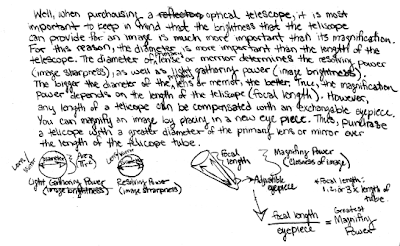 Well, when purchasing a reflecting optical telescope, it is most
important to keep in mind that the brightness that the telescope
can provide for an image is much more important that its magnification.
For this reason, the diameter is more important than the length of the
telescope. The diameter of lense or mirror determines the resolving power
(image sharpness), as well as light gathering power (image brightness).
The bigger the diameter of the lens or mirror, the better. True, the magnification
power depends on the length of the telescope (focal length). However,
any length of a telescope can be compensated with an exchangable eyepiece.
You can magnify an image by placing in a new eye piece. Thus, purchase
a telescope with a greater diameter of the primary lens or mirror over
the length of the telescope tube.
Lens/
Mirror
diameter
Area
Light Gathering Power
(image brightness)
Resolving Power
(image sharpness)
Focal
length
Magnifing Power
(closeness of image)
Adjustible
eyepiece
* Focal length:
1, 2, or 3x length of
tube.
Focal length
eyepiece
= Greatest
Magnifing
Power